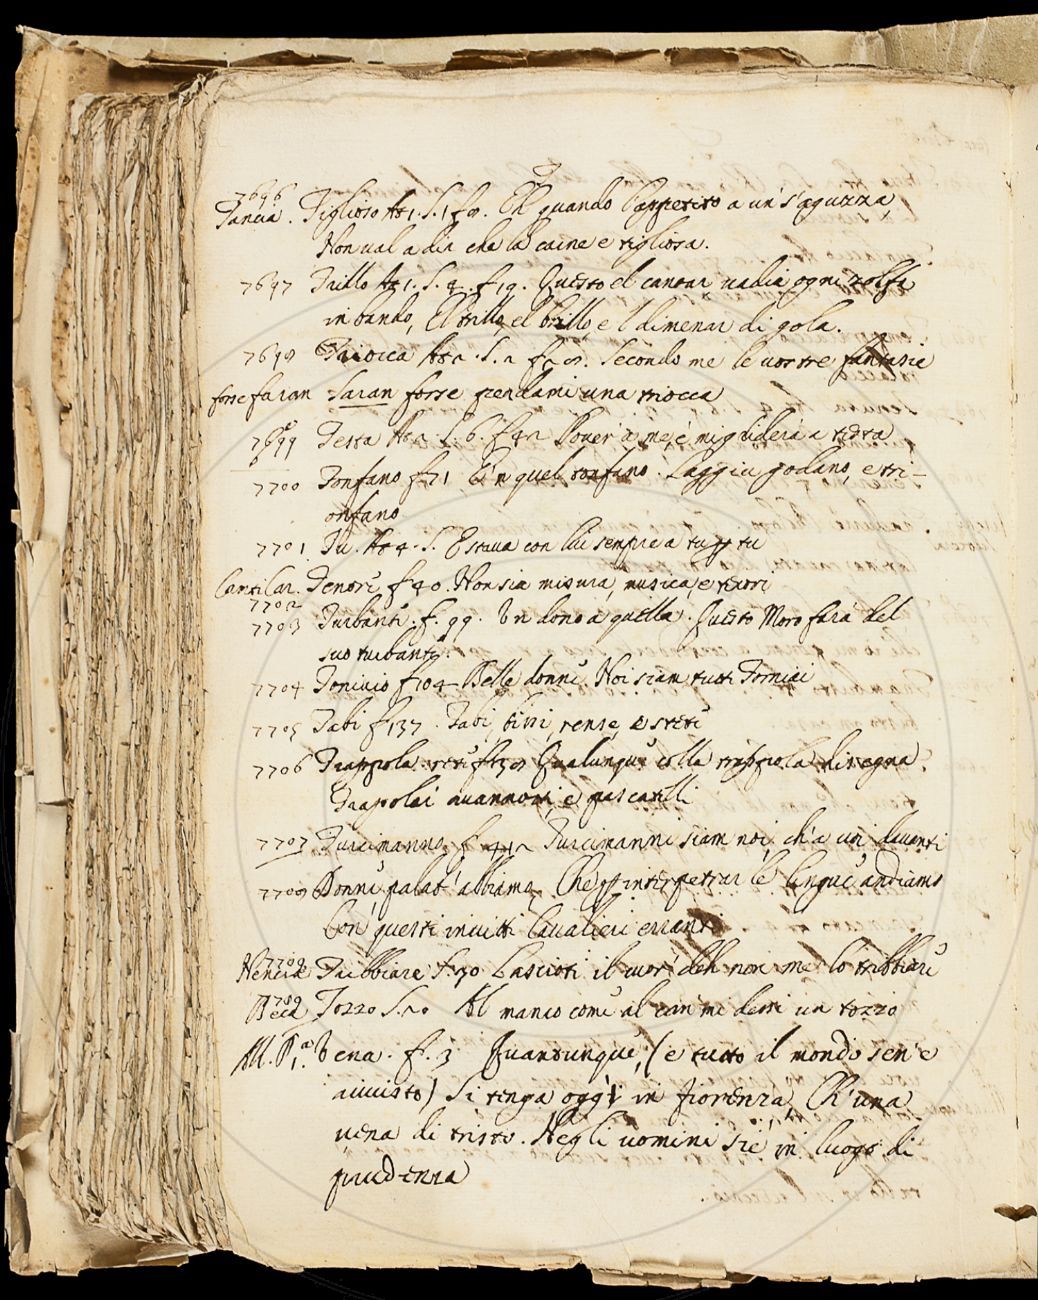 T
7696
Tancia. Tiglioso At. 1. S. 1 f 9. Ch quando l'appetito a un s'aguzza,
Non val a dir che la carne e tigliosa.
7697 Trillo At. 1. S. 4. f. 19. Questo el cantar vadia ogni zolfa
in bando, El trillo, el brillo, e'l dimenar di gola.
7698 Triocca At. 2. S. 2 f. Secondo me le vostre fantasie
forse faran Saran forse per darmi una triocca
7699 Testa At. S. 6. f 42 Pover a me, e mi gridera a testa
7700 Tonfano f 71 E'n quel tonfano. Laggiu godano, e tri-
onfano
7701 Tu. At. 4. S. Estiva con lui sempre a tu per tu
Canti Car. Tenore f 40. Non sia misura, musica, e
7702
7703 Turbante. f. 99. Un dono a quella. Questo Moro fara del
suo turbante.
7704 Torniaio f 104 Belle donne Noi siam tutti Torniai
7705 Tabi f 137. Tabi, bissi, rense, e
7706 Trappola f Qualunque colla trappola disegna
Trapolai e
7707 Turcimanno f 442 Turcimanni siam noi, ch'a voi davanti
7708 Donne, palat' abbiamo, Che per interpetrar le lingue andiamo
Con questi invitti Cavalieri erranti
7709
Nencia Tribbiare f. 50 Lascioti il cuor, deh non me lo tribbiare
7709
Beca Tozzo S. 20 Al manco come al can mi dessi un tozzo
All. P. 1.a Vena. f. 3 Quantunque, (e tutto il mondo sen' e
avvisto) Si tenga oggi in Fiorenza, Ch'una
vena di tristo. Negli uomini sie in luogo di
prudenza